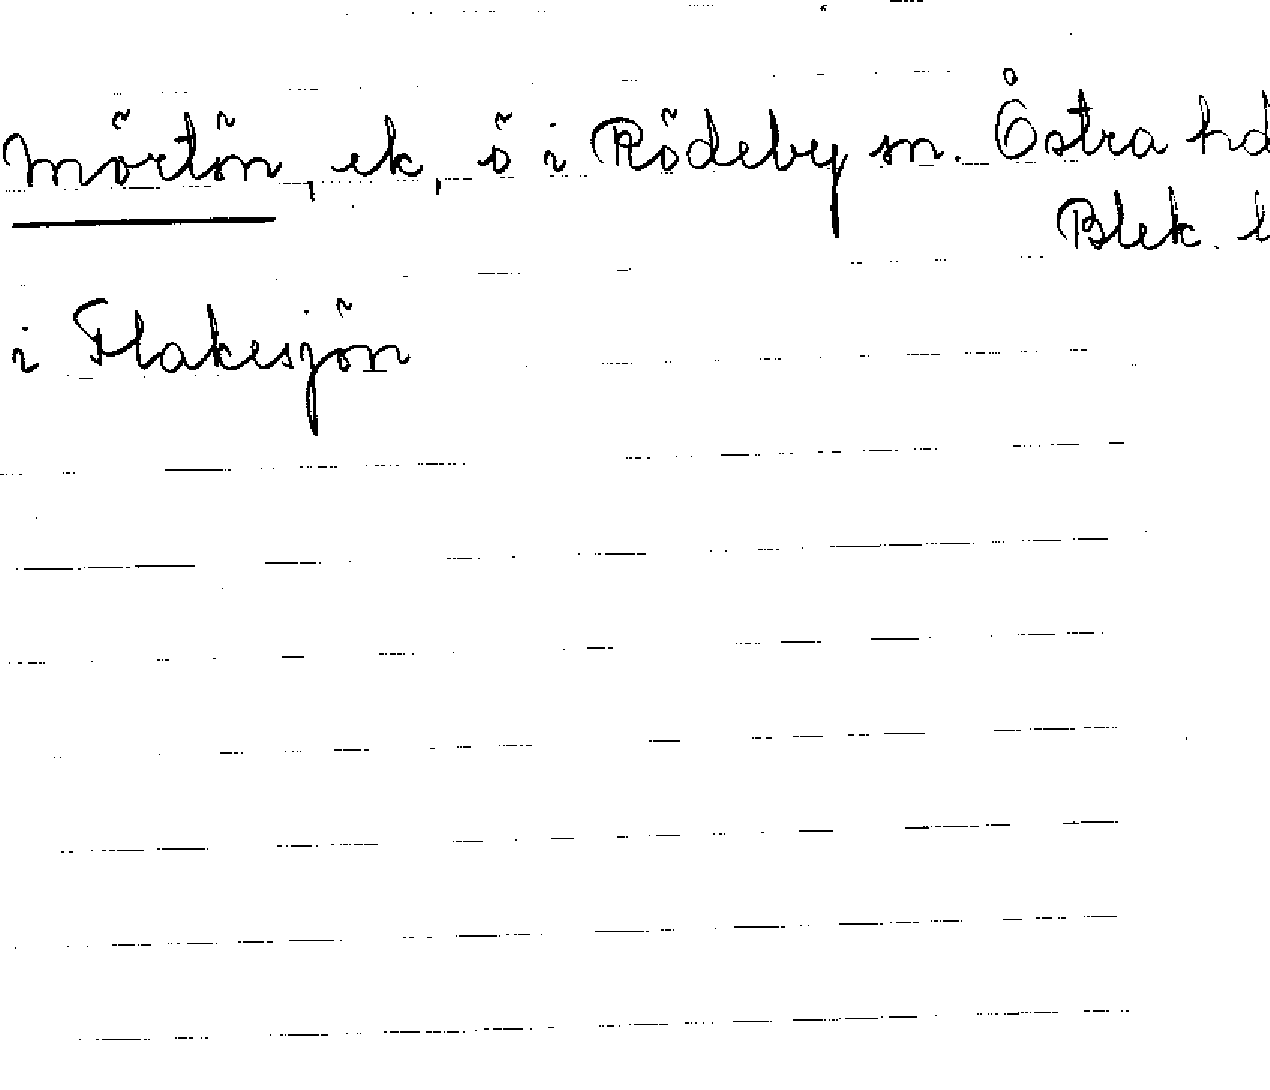 Mörtön, ek, ö i Rödeby sn. Östra hd
Blek. l
i Flakesjön